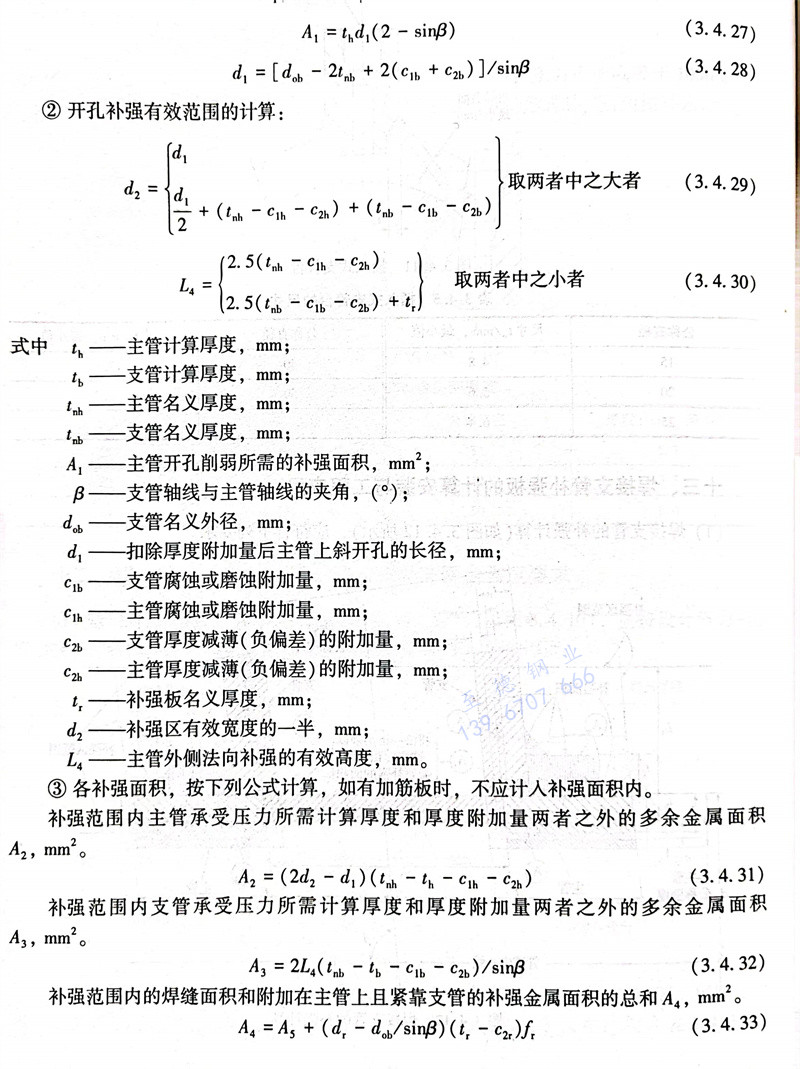 A₁ = tₕd₁(2 - sinβ) (3.4.27)
d₁ = [d_ob - 2t_nb + 2(c_1b + c_2b)]/sinβ (3.4.28)
② 开孔补强有效范围的计算：
d₂ = { d₁
d₁/2 + (t_nh - c_1h - c_2h) + (t_nb - c_1b - c_2b) } 取两者中之大者 (3.4.29)
L₄ = { 2.5(t_nh - c_1h - c_2h)
2.5(t_nb - c_1b - c_2b) + t_r } 取两者中之小者 (3.4.30)
式中 t_h——主管计算厚度，mm；
t_b——支管计算厚度，mm；
t_nh——主管名义厚度，mm；
t_nb——支管名义厚度，mm；
A₁——主管开孔削弱所需的补强面积，mm²；
β——支管轴线与主管轴线的夹角，(°)；
d_ob——支管名义外径，mm；
d₁——扣除厚度附加量后主管上斜开孔的长径，mm；
c_1b——支管腐蚀或磨蚀附加量，mm；
c_1h——主管腐蚀或磨蚀附加量，mm；
c_2b——支管厚度减薄(负偏差)的附加量，mm；
c_2h——主管厚度减薄(负偏差)的附加量，mm；
至德钢业
139 6707 666
t_r——补强板名义厚度，mm；
d₂——补强区有效宽度的一半，mm；
L₄——主管外侧法向补强的有效高度，mm。
③ 各补强面积，按下列公式计算，如有加筋板时，不应计人补强面积内。
补强范围内主管承受压力所需计算厚度和厚度附加量两者之外的多余金属面积
A₂，mm²。
A₂ = (2d₂ - d₁)(t_nh - t_h - c_1h - c_2h) (3.4.31)
补强范围内支管承受压力所需计算厚度和厚度附加量两者之外的多余金属面积
A₃，mm²。
A₃ = 2L₄(t_nb - t_b - c_1b - c_2b)/sinβ (3.4.32)
补强范围内的焊缝面积和附加在主管上且紧靠支管的补强金属面积的总和 A₄，mm²。
A₄ = A₅ + (d_r - d_ob/sinβ)(t_r - c_2r)f_r (3.4.33)